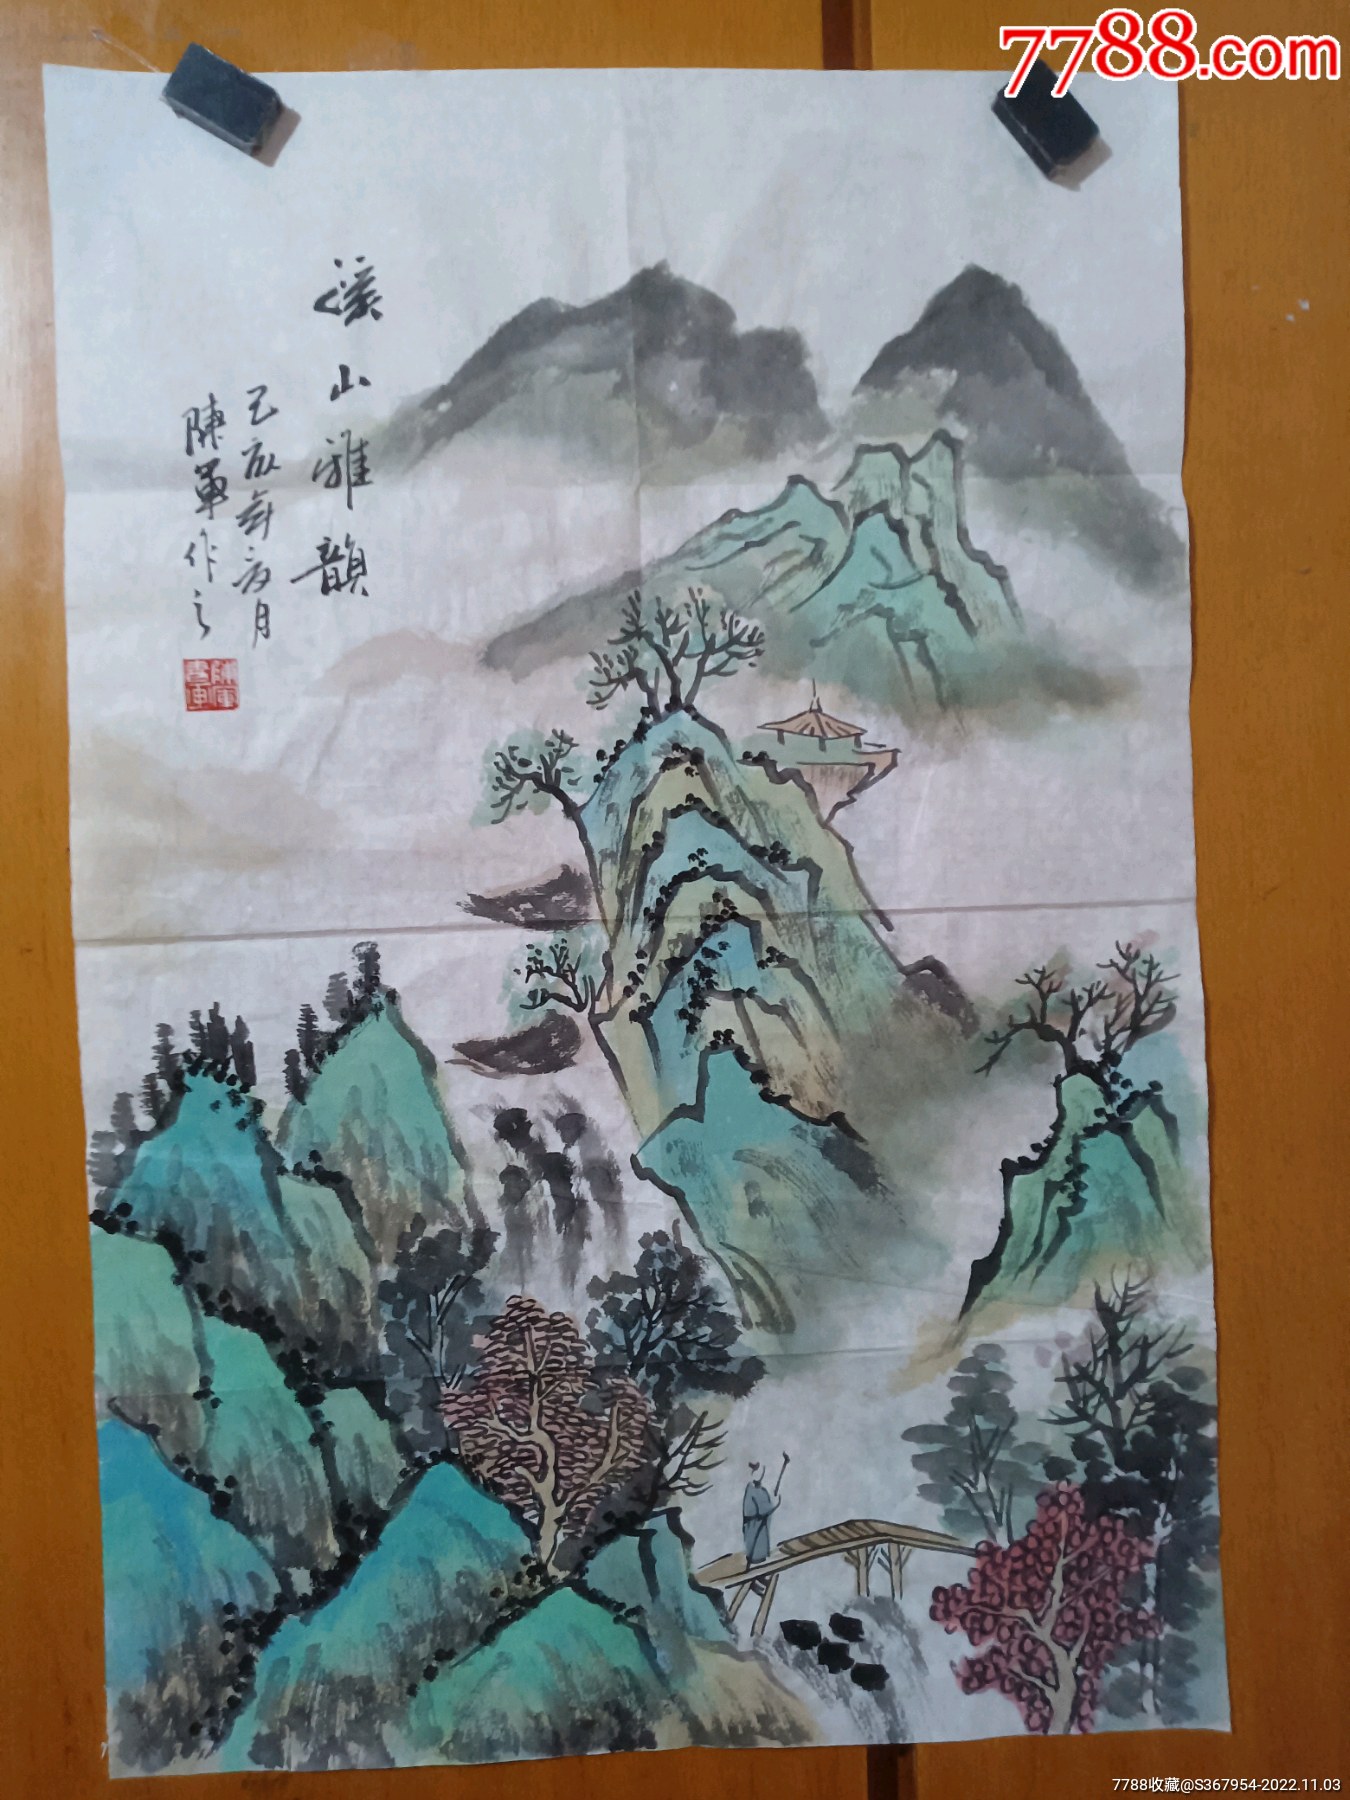 7788.com
溪山雅韻
己亥年之月
陳軍作之
7788收藏@S367954-2022.11.03